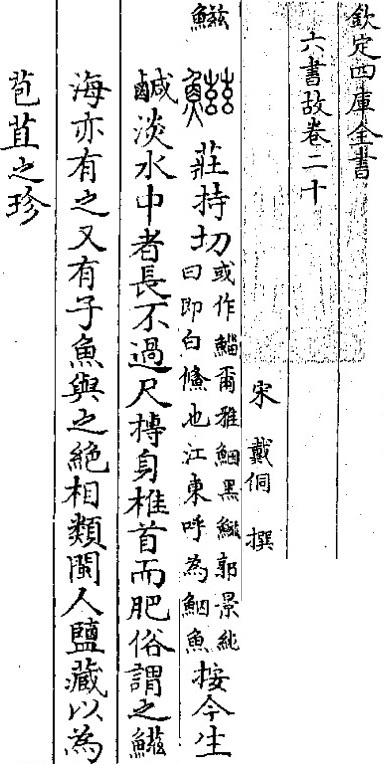 欽定四庫全書
六書故卷二十
宋 戴侗 撰
鰦 莊持切或作鯔爾雅鮂黑鰦郭景純曰即白鯈也江東呼為鮂魚按今生
鹹淡水中者長不過尺摶身椎首而肥俗謂之鰦
海亦有之又有子魚與之絶相類閩人鹽藏以為
苞苴之珍